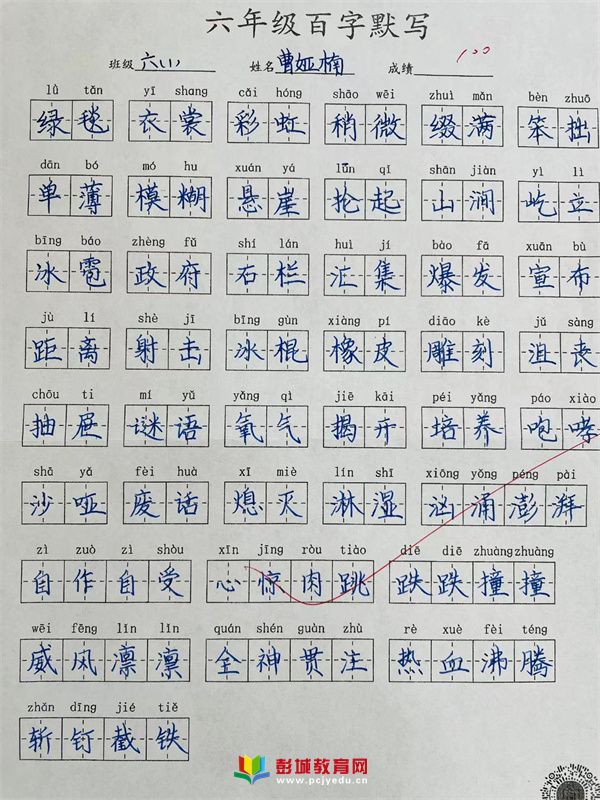 六年级百字默写
班级 六(1) 姓名 曹娅楠 成绩 100
lǜ tǎn yī shang cǎi hóng shāo wēi zhuì mǎn bèn zhuō
绿毯 衣裳 彩虹 稍微 缀满 笨拙
dān bó mó hu xuán yá lūn qǐ shān jiàn yì lì
单薄 模糊 悬崖 抡起 山涧 屹立
bīng báo zhèng fǔ shí lán huì jí bào fā xuān bù
冰雹 政府 石栏 汇集 爆发 宣布
jù lí shè jī bīng gùn xiàng pí diāo kè jǔ sàng
距离 射击 冰棍 橡皮 雕刻 沮丧
chōu ti mí yǔ yǎng qì jiē kāi péi yǎng páo xiào
抽屉 谜语 氧气 揭开 培养 咆哮
shā yǎ fèi huà xī miè lín shī xiōng yǒng péng pài
沙哑 废话 熄灭 淋湿 汹涌澎湃
zì zuò zì shòu xīn jīng ròu tiào diē diē zhuàng zhuàng
自作自受 心惊肉跳 跌跌撞撞
wēi fēng lǐn lǐn quán shén guàn zhù rè xuè fèi téng
威风凛凛 全神贯注 热血沸腾
zhǎn dīng jié tiě
斩钉截铁
彭城教育网
www.pcjyedu.cn